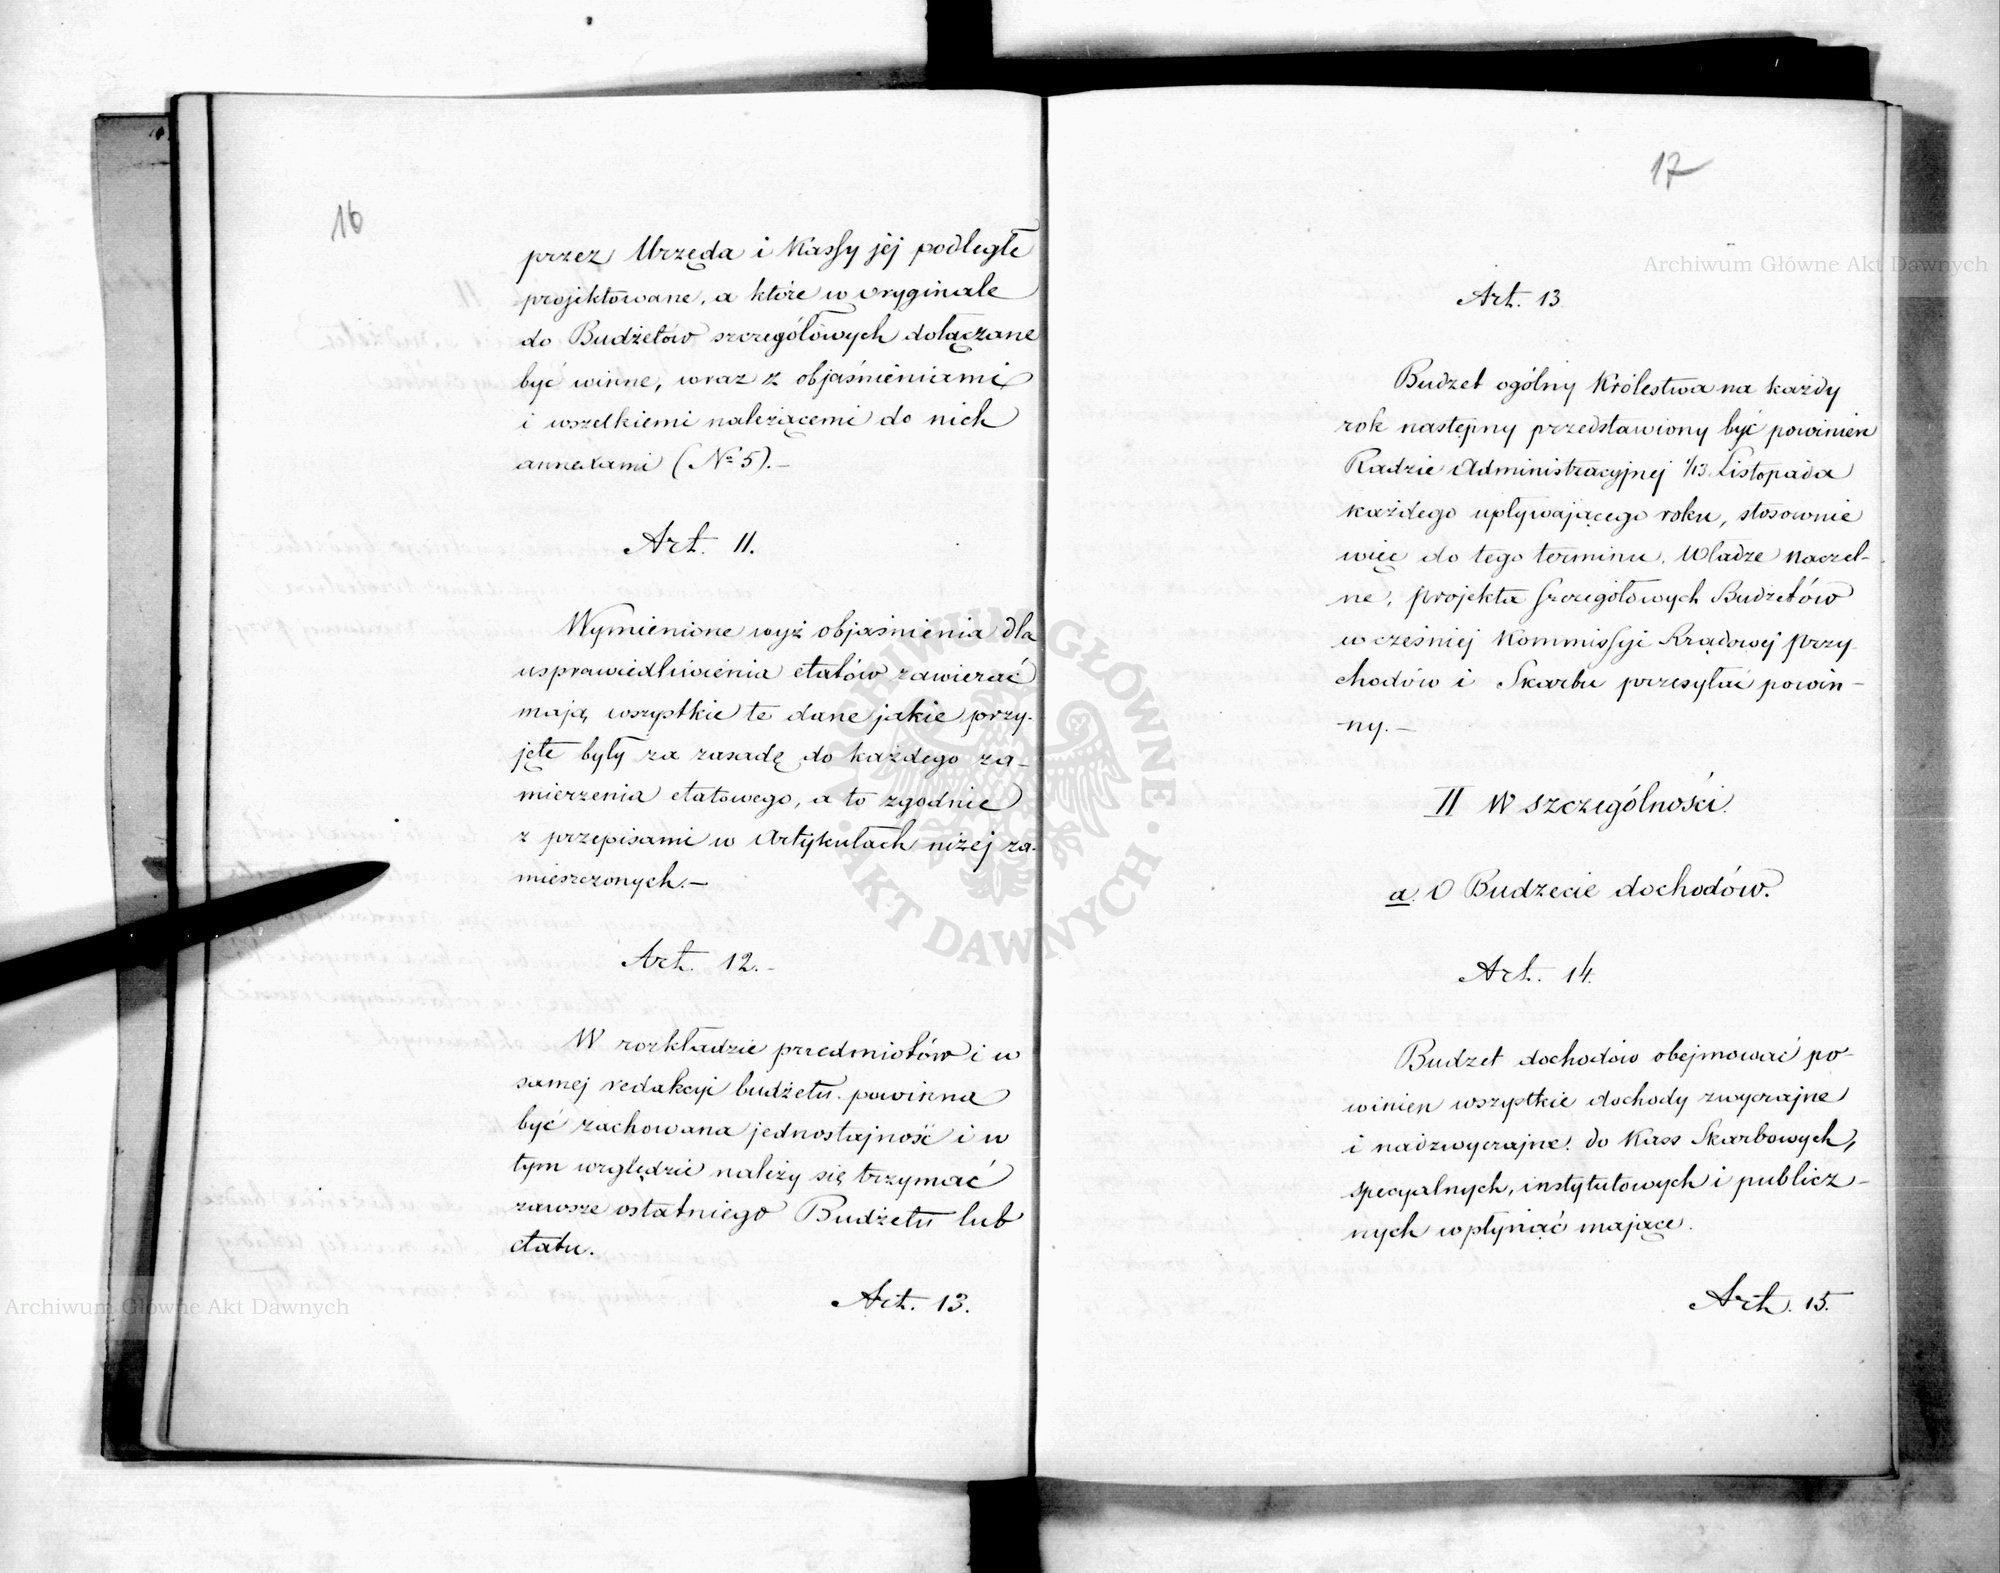 16
przez Urzęda i Kassy jej podległe
projektowane, a które w oryginale
do Budżetów szczegółowych dołączane
być winne, wraz z objaśnieniami
i wszelkiemi należącemi do nich
annexami (No 5).—
Art. 11.
Wymienione wyż objaśnienia dla
usprawiedliwienia etatów zawierać
mają wszystkie te dane jakie przy-
jęte były za zasadę do każdego za-
mierzenia etatowego, a to zgodnie
z przepisami w Artykułach niżej za-
mieszczonych.—
Art. 12.—
W rozkładzie przedmiotów i w
samej redakcyi budżetu powinna
być zachowana jednostajność i w
tym względzie należy się trzymać
zawsze ostatniego Budżetu lub
etatu.
Art. 13.
17
Art. 13
Budżet ogólny Królestwa na każdy
rok następny przedstawiony być powinien
Radzie Administracyjnej 1/13 Listopada
każdego upływającego roku, stosownie
więc do tego terminu, Władze Naczel-
ne, projekta szczegółowych Budżetów
wcześniej Kommissyi Rządowej Przy
chodów i Skarbu przesyłać powin-
ny.—
II W szczególności.
a. O Budżecie dochodów.
Art. 14.
Budżet dochodów obejmować po-
winien wszystkie dochody zwyczajne
i nadzwyczajne do Kass Skarbowych,
specyalnych, instytutowych i publicz-
nych wpłynąć mające.
Art. 15.
Archiwum Główne Akt Dawnych
Archiwum Główne Akt Dawnych
ARCHIWUM GŁÓWNE · AKT DAWNYCH ·